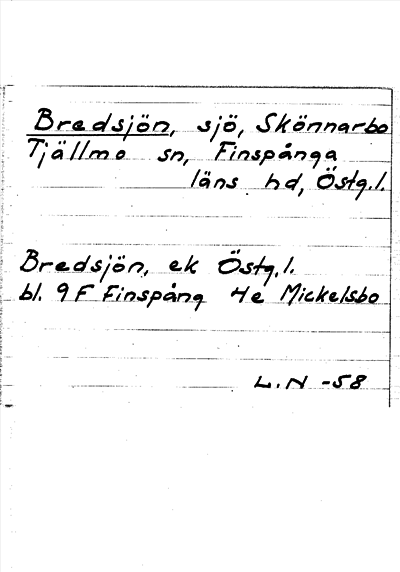 Bredsjön, sjö, Skönnarbo
Tjällmo sn, Finspånga
läns hd, Östg.l.
Bredsjön, ek Östg.l.
bl. 9F Finspång 4e Mickelsbo
L.N -58